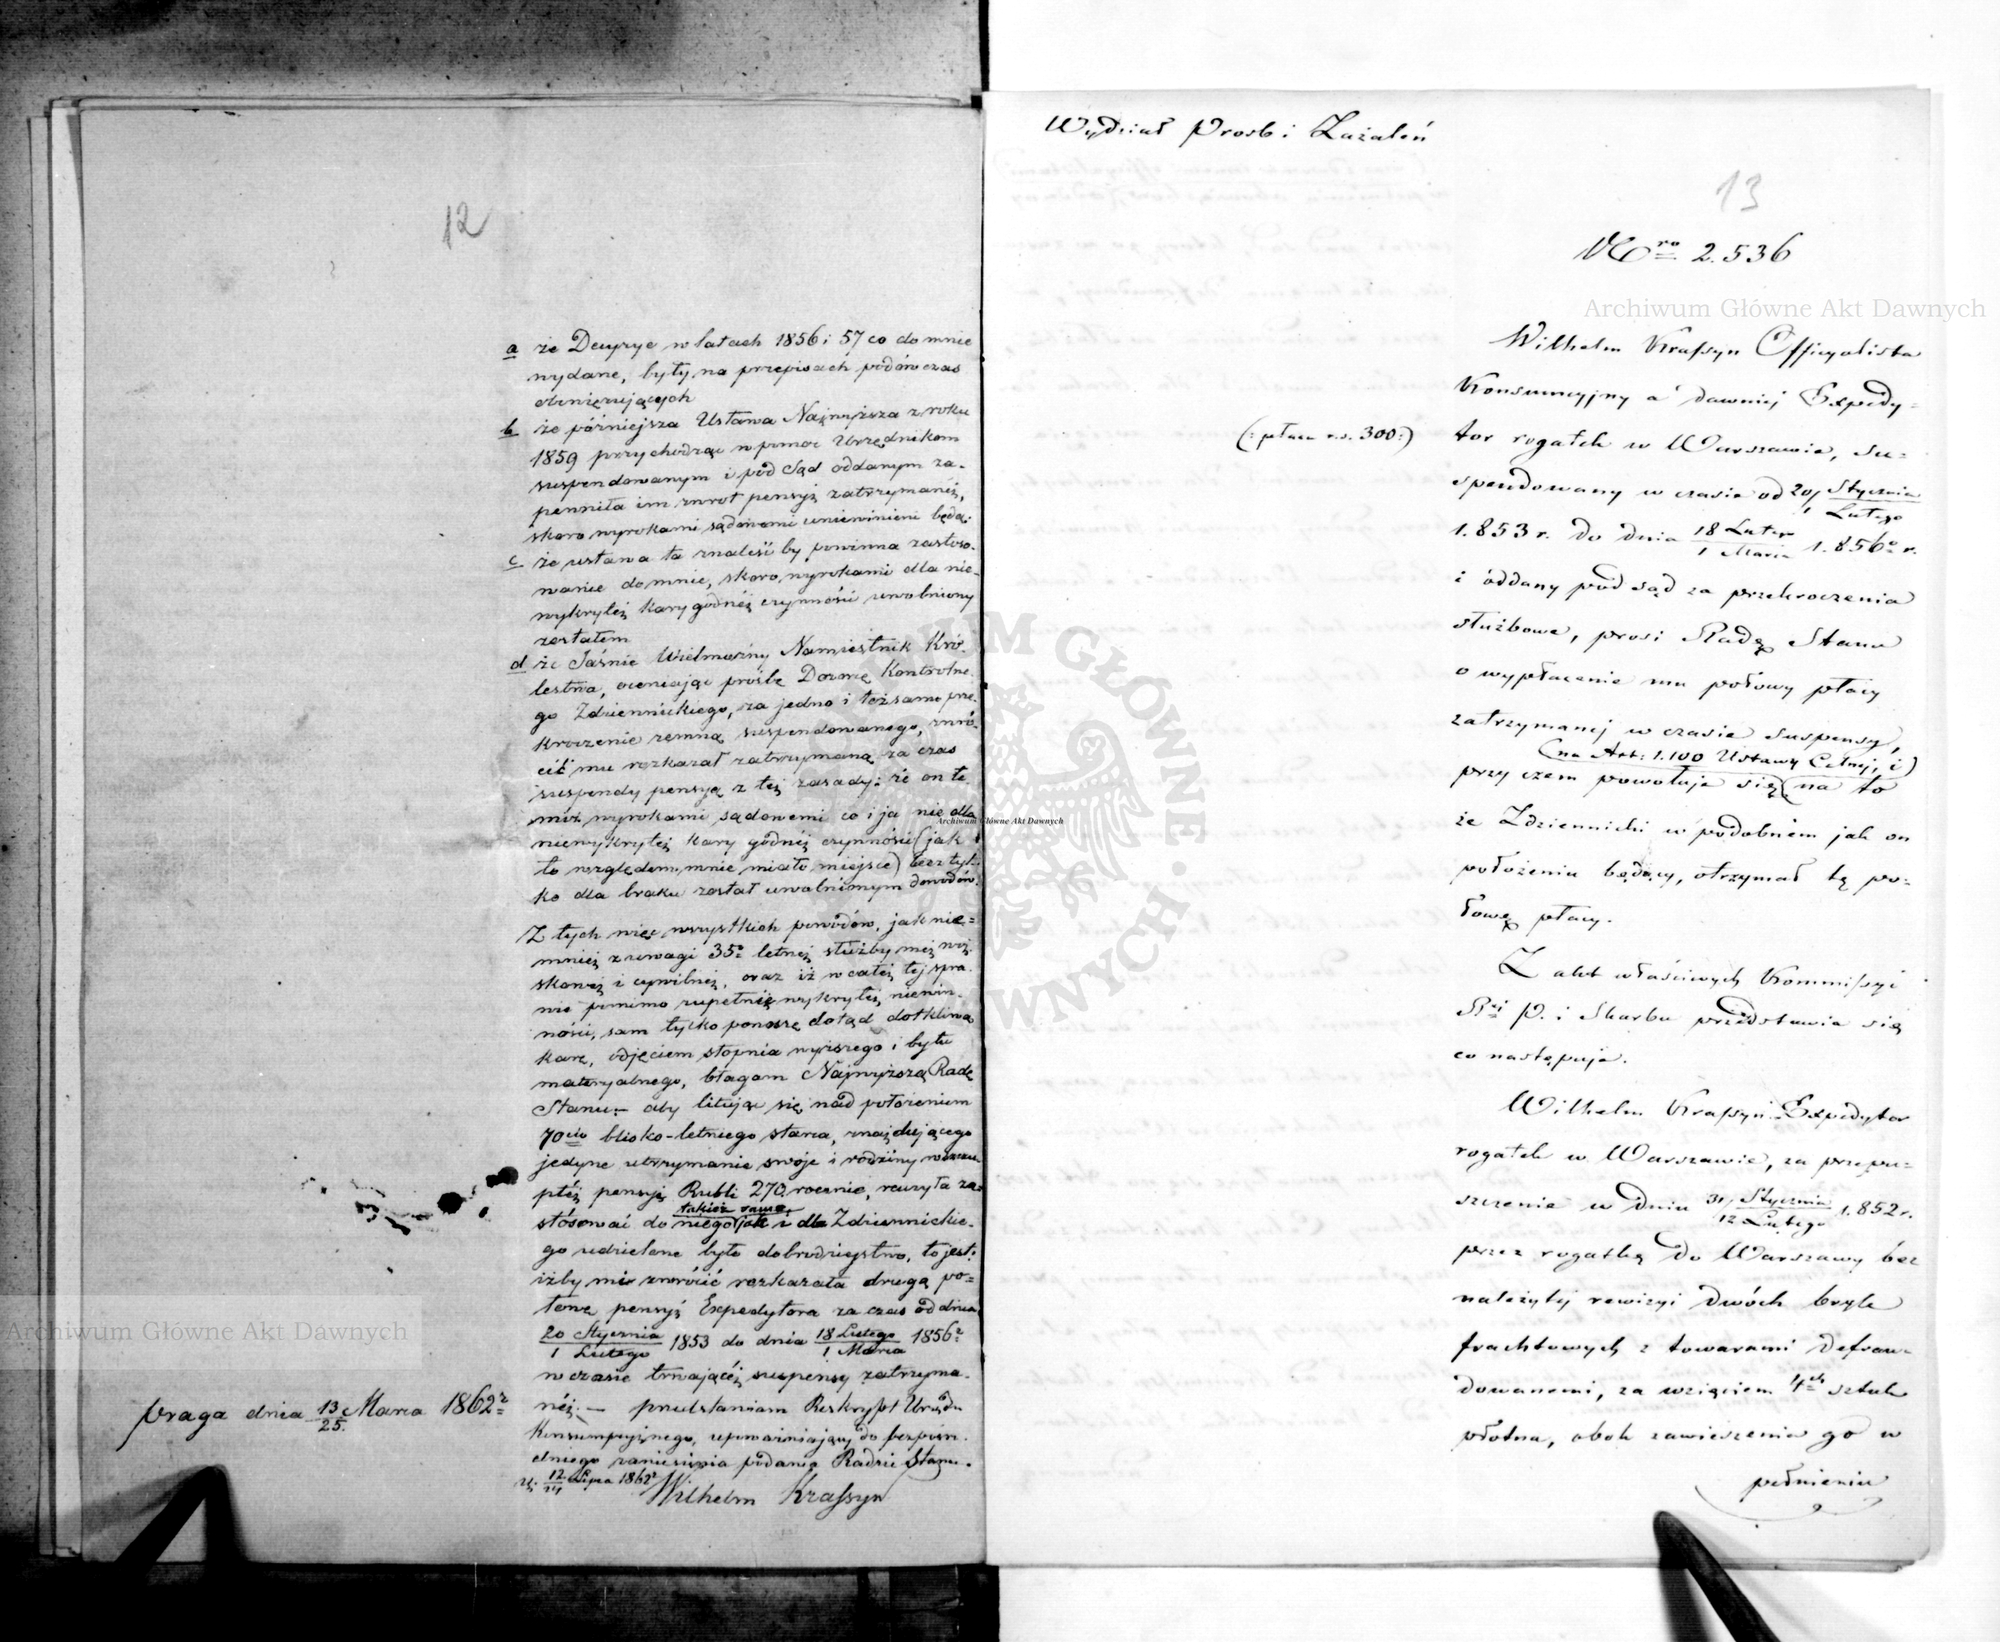 12
a że Decyzye w latach 1856 i 57 co do mnie
wydane, były na przepisach podówczas
obowiązujących
b że późniejsza Ustawa Najwyższa z roku
1859 przychodząc w pomoc Urzędnikom
suspendowanym i pod Sąd oddanym za-
pewniła im zwrot pensyi zatrzymanéj,
skoro wyrokami sądowemi uniewinieni będą.
c że ustawa ta znaleść by powinna zastoso-
wanie do mnie, skoro wyrokami dla nie-
wykrytéj kary godnéj czynności uwolniony
zostałem
d że Jaśnie Wielmożny Namiestnik Kró-
lestwa, oceniając prośbę Kontrolne-
go Zdziennickiego, za jedno i toż samo prze-
kroczenie zemną suspendowanego, zwró-
cić mu rozkazał zatrzymaną za czas
suspendy pensyą z téj zasady: że on te-
miż wyrokami sądowemi co i ja nie dla
niewykrytéj kary godnéj czynności (jak
to względem mnie miało miejsce) lecz tyl-
ko dla braku został uwolnionym dowodów.
Z tych więc wszystkich powodów, jak nie=
mniéj z uwagi 35o letnéj służby méj woj-
skowéj i cywilnéj, oraz iż w całéj téj spra-
wie pomimo zupełnie wykrytéj niewin-
ności, sam tylko ponoszę dotąd dotkliwą
karę, odjęciem stopnia wyższego i bytu
materyalnego, błagam Najwyższą Radę
Stanu:- aby litując się nad położeniem
70cio blisko-letniego starca, znajdującego
jedyne utrzymanie swoje i rodziny w szczu-
płéj pensyi Rubli 270 rocznie, raczyła za=
stósować do niego
takież same,
jak i dla Zdziennickie-
go udzielone było dobrodziejstwo, to jest:
iżby mi zwrócić rozkazała drugą po=
łowę pensyi Expedytora za czas od dnia
20 Stycznia / 1 Lutego 1853 do dnia 18 Lutego / 1 Marca 1856r
w czasie trwającéj suspensy zatrzyma-
néj. — przedstawiam Reskrypt Urzędu
Konsumpcyjnego, upoważniający do bezpośre-
dniego zaniesienia podania Radzie Stanu.
12/24 Lipca 1862r
Wilhelm Krassyn
Praga dnia 13/25. Marca 1862r
Wydział Prosb i Zażaleń
13
Nro 2.536
Wilhelm Krassyn Officyalista
Konsumcyjny a dawniej Expedy=
(: płaca r.s. 300:)
tor rogatek w Warszawie, su=
spendowany w czasie od 20/1 Stycznia / Lutego
1.853 r. do dnia 18 Lutego / 1 Marca 1.856o r.
i oddany pod sąd za przekroczenia
służbowe, prosi Radę Stanu
o wypłacenie mu połowy płacy
zatrzymanej w czasie suspensy,
(na Art: 1.100 Ustawy Celnej, i)
przy czem powołuje się na to
że Zdziennicki w podobnem jak on
położeniu będący, otrzymał tę po=
łowę płacy.
Z akt właściwych Kommissyi
R.i P. i Skarbu przedstawia się
co następuje.
Wilhelm Krassyn Expedytor
rogatek w Warszawie, za przepu=
szczenie w dniu 31/12 Stycznia / Lutego 1.852 r.
przez rogatkę do Warszawy bez
należytej rewizyi dwóch bryk
frachtowych z towarami defrau-
dowanemi, za wzięciem 4ch sztuk
płótna, obok zawieszenia go w
pełnieniu
Archiwum Główne Akt Dawnych
Archiwum Główne Akt Dawnych
Archiwum Główne Akt Dawnych